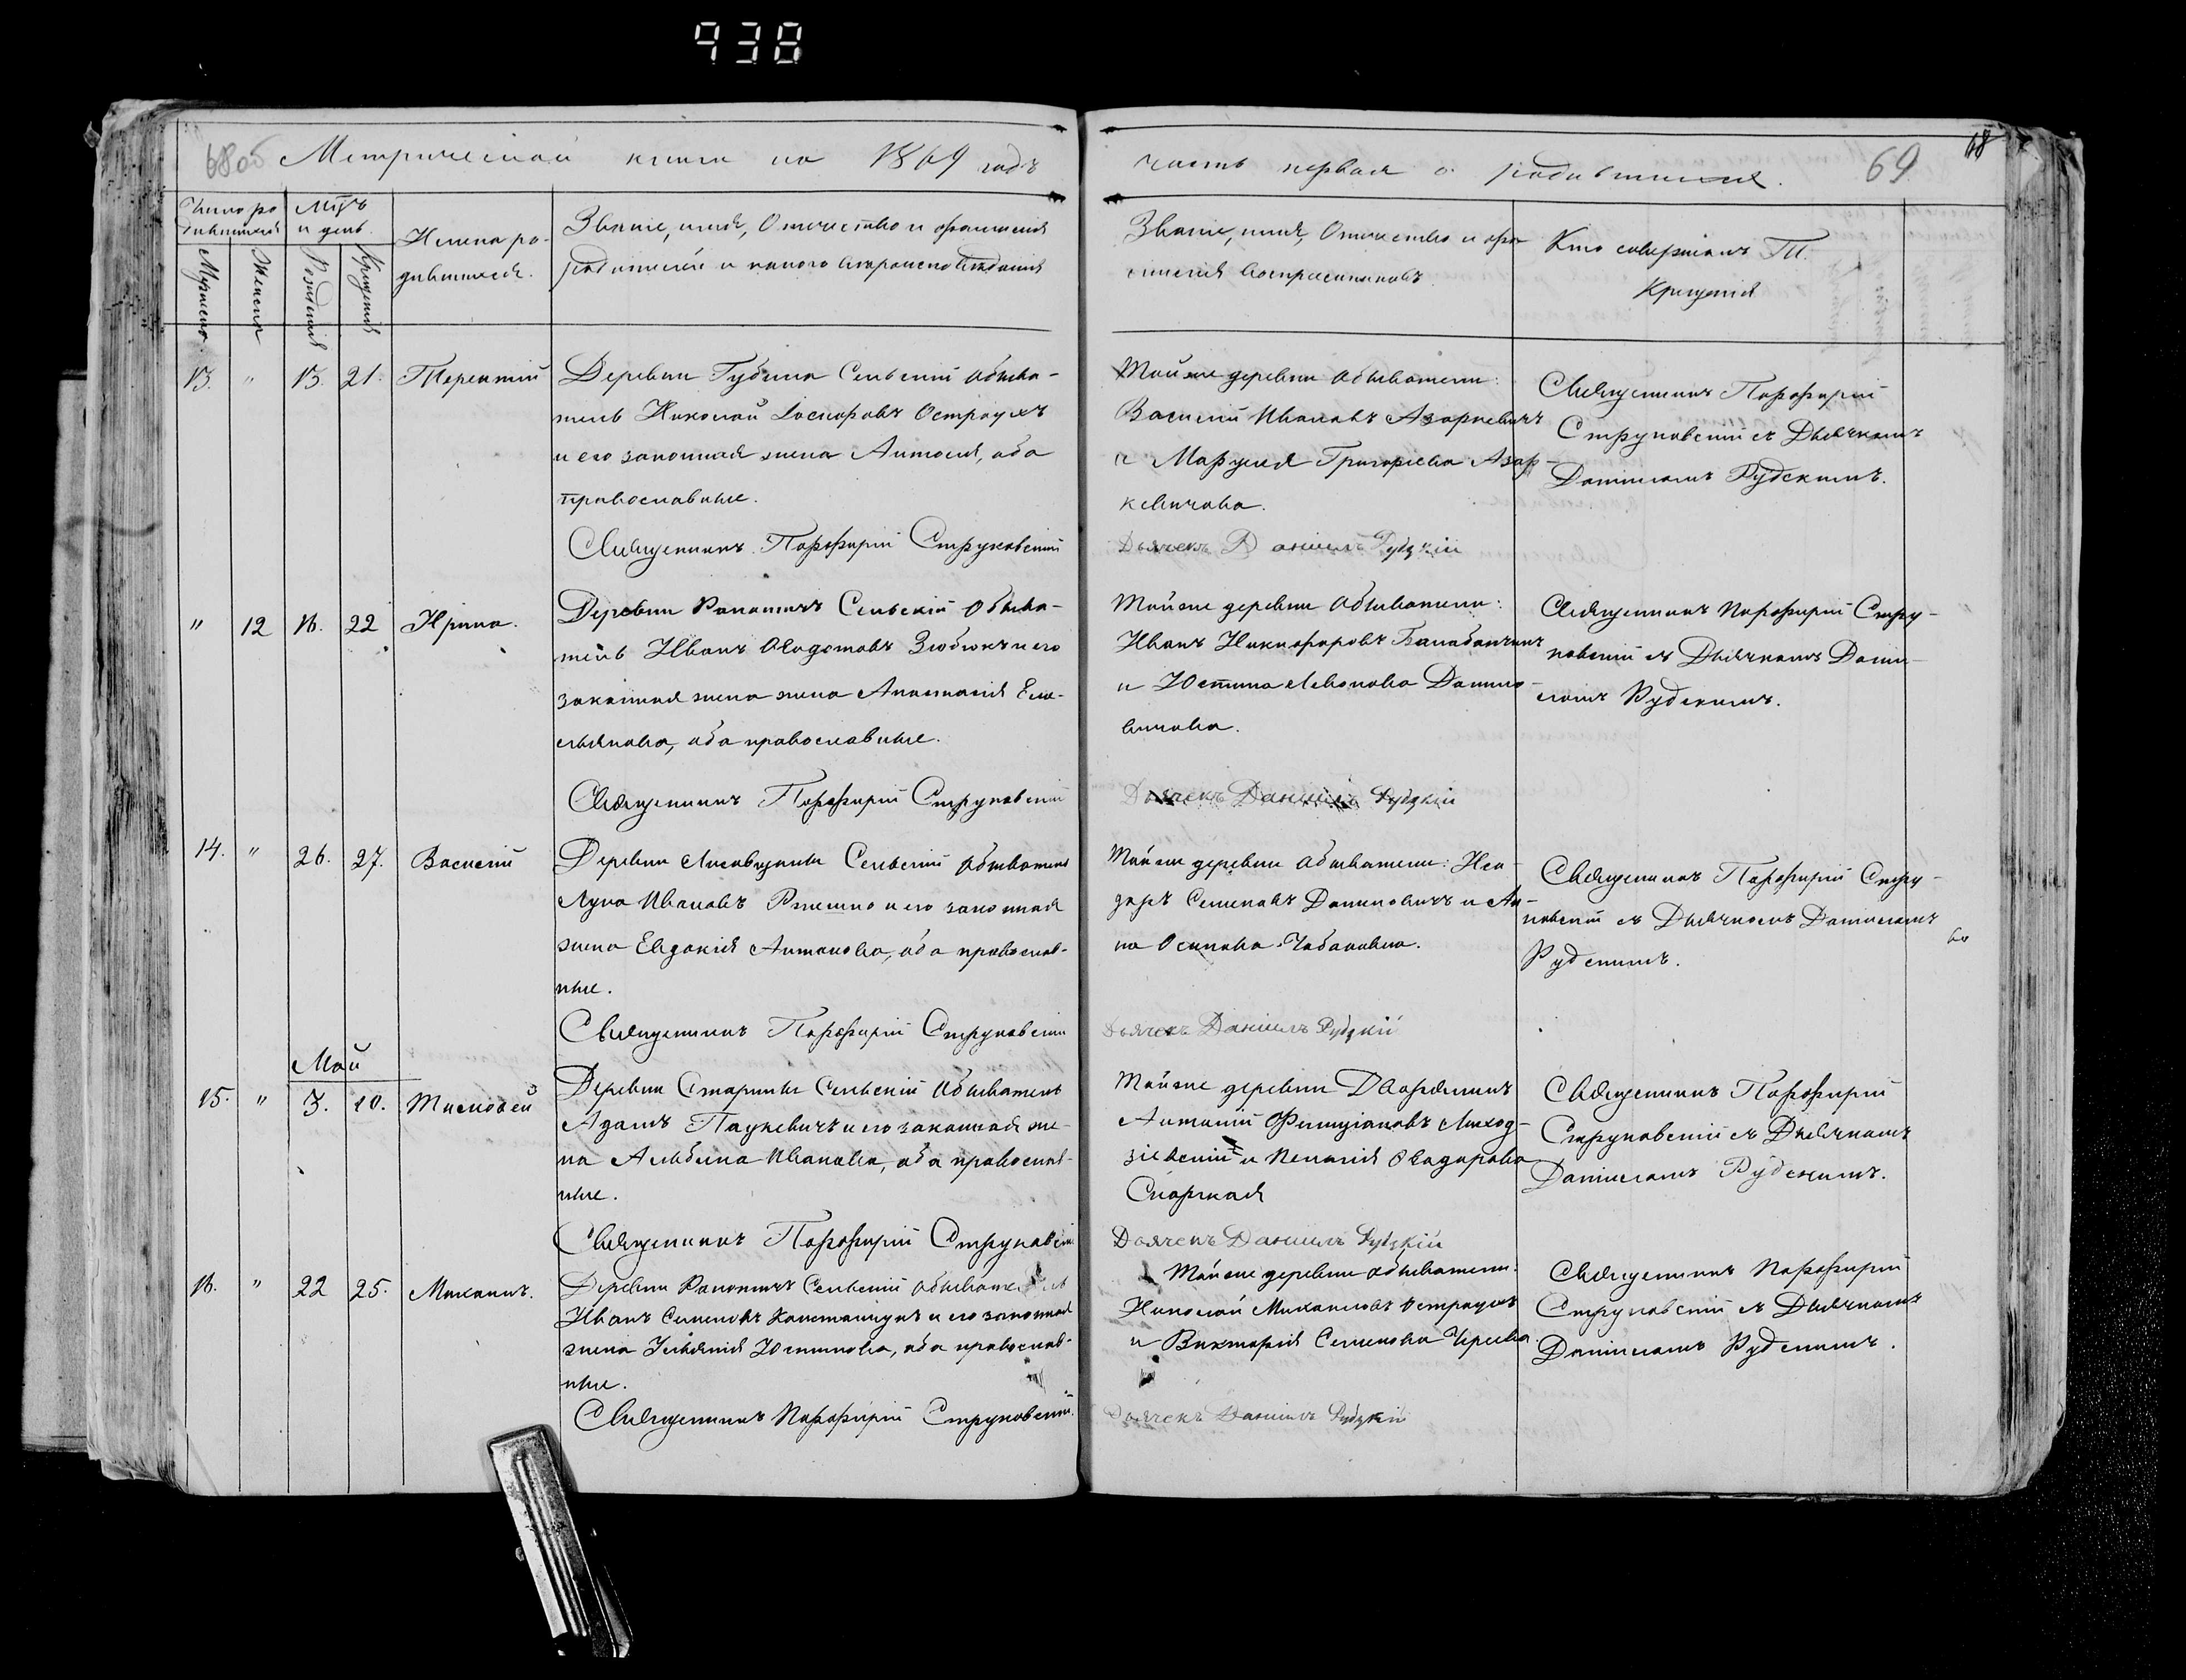 938
68об Метрической книги на 1869 годъ
часть первая о родившихся.
69
68
Число ро-
дившихся
Мцъ
и день.
Имена ро-
дившихся.
Званіе, имя, Отчество и фамилия
родителей и какого вѣроисповѣданія
Мужеска.
Женска
Рожденія
Крещенія
Званіе, имя, Отчество и фа-
милия воспріемниковъ.
Кто совершалъ Т.
Крещенія
13. " 13. 21. Терентій
Деревни Губина Сельскій обыва-
тель Николай Іосифовъ Остроухъ
и его законная жена Антося, оба
православные.
Священникъ Порфирій Струковскій
Той же деревни обыватели:
Василій Ивановъ Азаркевичъ
и Маруся Григорьева Азар-
кевичова.
Дьячекъ Даніилъ Рудзкій
Священникъ Порфирій
Струковскій съ Дьячкомъ
Даниломъ Рудскимъ.
" 12 16. 22 Ирина.
Деревни Рапатичъ Сельскій обыва-
тель Иванъ Ѳедотовъ Зюблюкъ и его
законная жена жена Анастасія Еме-
льянова, оба православные.
Священникъ Порфирій Струковскій
Той же деревни обыватели:
Иванъ Никифоровъ Балабанчикъ
и Юстина Левонова Данило-
вичова.
Дьячекъ Даніилъ Рудзкій
Священникъ Порфирій Стру-
ковскій съ Дьячкомъ Дани-
ломъ Рудскимъ.
14. " 26. 27. Василій
Деревни Сельскій обыватель
Лука Ивановъ и его законная
жена Евдокія Антонова, оба православ-
ные.
Священникъ Порфирій Струковскій
Той же деревни обыватели: Иси-
доръ Семеновъ Даниловичъ и Ан-
на Осипова Чабановна.
Дьячекъ Даніилъ Рудзкій
Священникъ Порфирій Стру-
ковскій съ Дьячкомъ Даниломъ
Рудскимъ.
Май
15. " 3. 10. Тимоѳей
Деревни Старинки Сельскій обыватель
Адамъ Пацкевичъ и его законная же-
на Альбина Иванова, оба православ-
ные.
Священникъ Порфирій Струковскій
Той же деревни Дворянинъ
Антоній Фелиціановъ Лиход-
зіевскій и Пелагія Ѳедорова
Сморжкая
Дьячекъ Даніилъ Рудзкій
Священникъ Порфирій
Струковскій съ Дьячкомъ
Даниломъ Рудскимъ.
16. " 22 25. Михаилъ.
Деревни Рапатичъ Сельскій обыватель
Иванъ Семеновъ Констанцукъ и его законная
жена Ульянія Юстинова, оба православ-
ные.
Священникъ Порфирій Струковскій.
Той же деревни обыватели:
Николай Михаиловъ Остроухъ
и Викторія Семенова
Дьячекъ Даніилъ Рудзкій
Священникъ Порфирій
Струковскій съ Дьячкомъ
Даниломъ Рудскимъ.